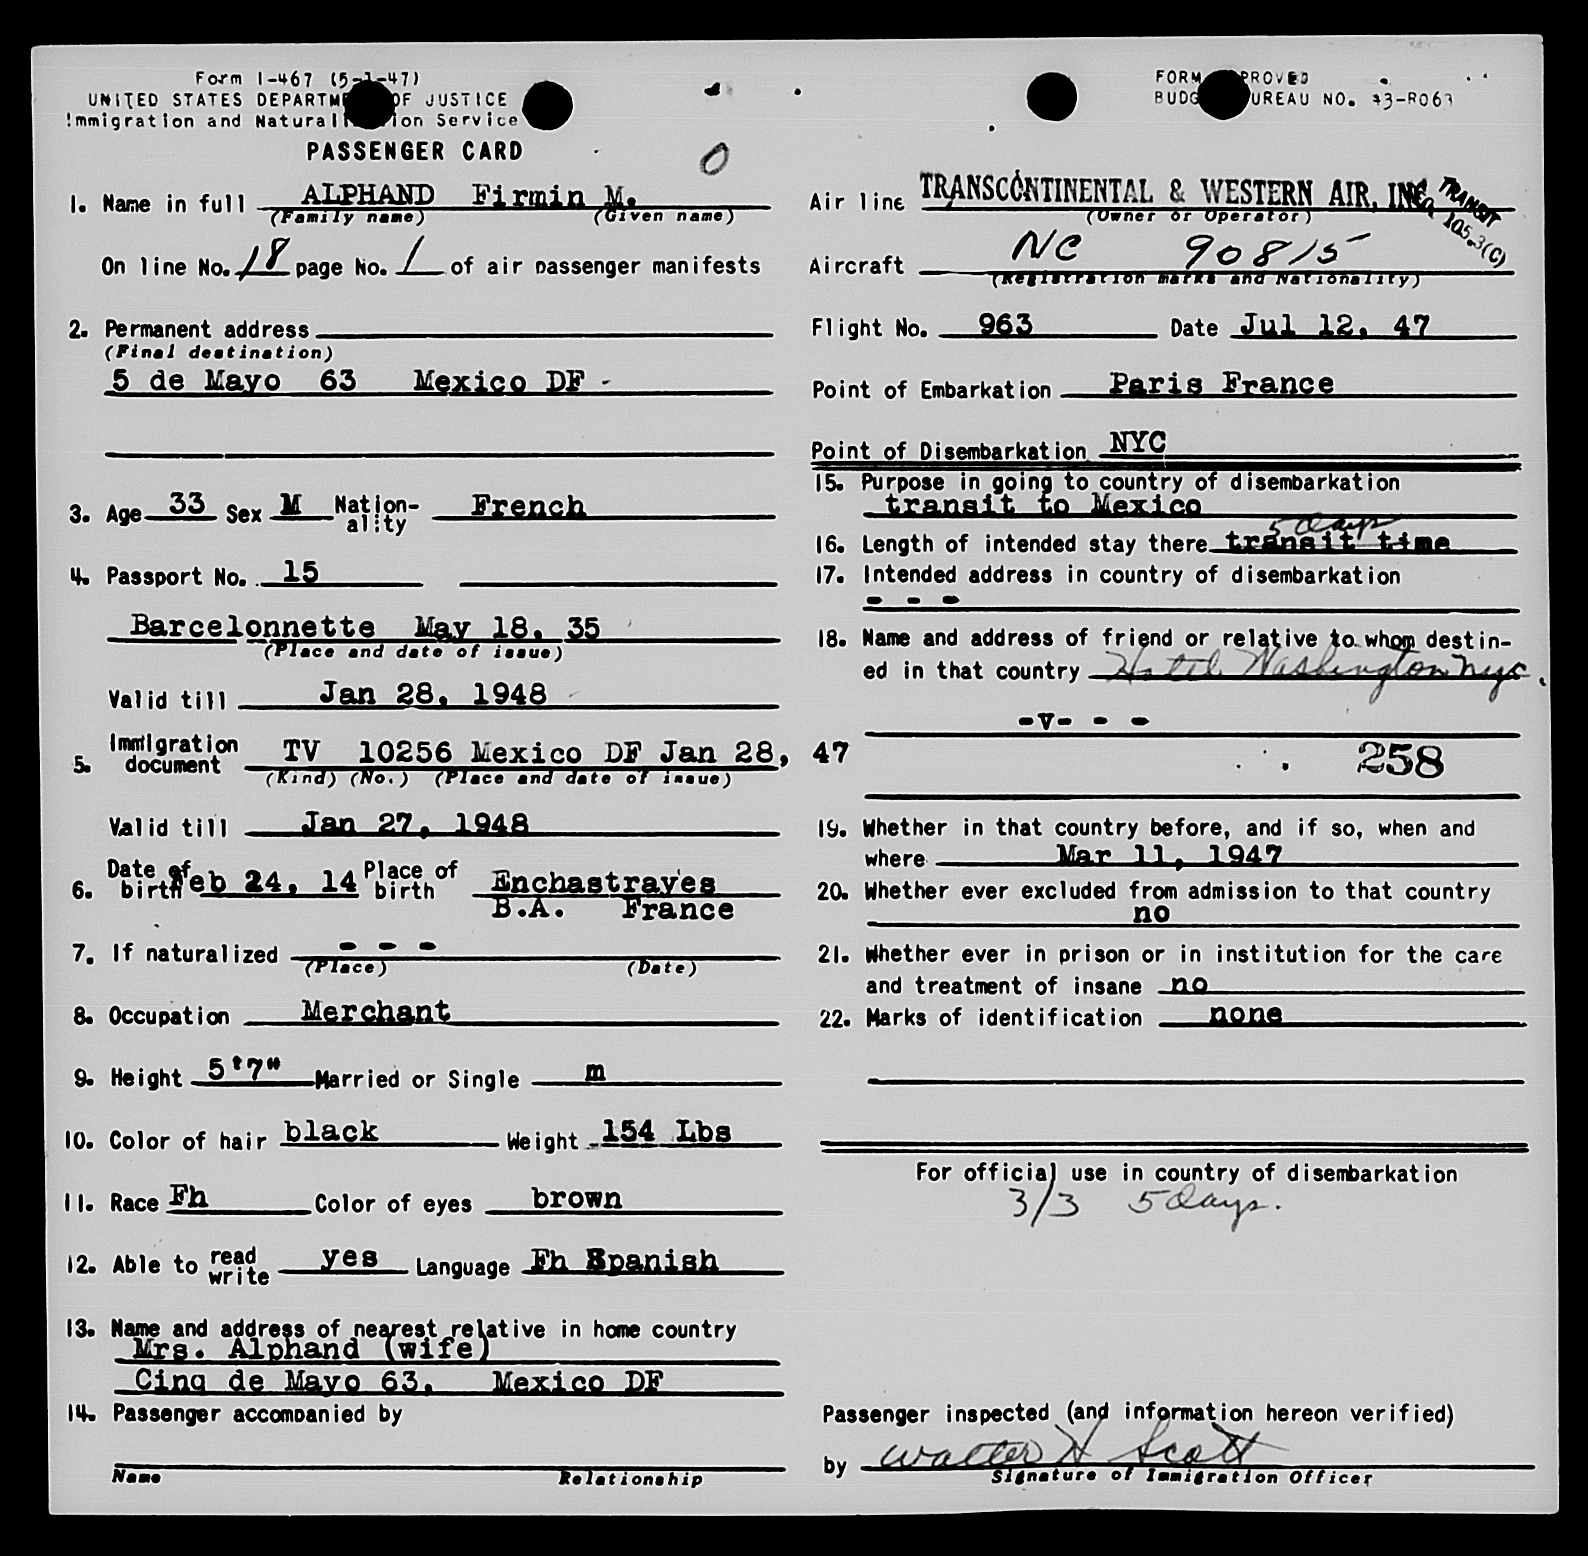 Form I-467 (5-1-47)
UNITED STATES DEPARTMENT OF JUSTICE
Immigration and Naturalization Service
PASSENGER CARD
0
1. Name in full ALPHAND Firmin M.
(Family name) (Given name)
On line No. 18 page No. 1 of air passenger manifests
2. Permanent address
(Final destination)
5 de Mayo 63 Mexico DF -
3. Age 33 Sex M Nation-ality French
4. Passport No. 15
Barcelonnette May 18, 35
(Place and date of issue)
Valid till Jan 28, 1948
5. Immigration document TV 10256 Mexico DF Jan 28, 47
(Kind) (No.) (Place and date of issue)
Valid till Jan 27, 1948
6. Date of birth Feb 24, 14 Place of birth Enchastrayes
B.A. France
7. If naturalized - - -
(Place) (Date)
8. Occupation Merchant
9. Height 5'7" Married or Single m
10. Color of hair black Weight 154 Lbs
11. Race Fh Color of eyes brown
12. Able to read write yes Language Fh Spanish
13. Name and address of nearest relative in home country
Mrs. Alphand (wife)
Cinq de Mayo 63, Mexico DF
14. Passenger accompanied by
Name Relationship
FORM APPROVED
BUDGET BUREAU NO. 43-R063
Air line TRANSCONTINENTAL & WESTERN AIR, INC.
(Owner or Operator)
TRANSIT
105.3(C)
Aircraft NC 90815
(Registration marks and Nationality)
Flight No. 963 Date Jul 12, 47
Point of Embarkation Paris France
Point of Disembarkation NYC
15. Purpose in going to country of disembarkation
transit to Mexico
5 days
16. Length of intended stay there transit time
17. Intended address in country of disembarkation
- - -
18. Name and address of friend or relative to whom destin-
ed in that country Hotel Washington Nyc.
-v- - -
258
19. Whether in that country before, and if so, when and
where Mar 11, 1947
20. Whether ever excluded from admission to that country
no
21. Whether ever in prison or in institution for the care
and treatment of insane no
22. Marks of identification none
For official use in country of disembarkation
3/3 5 days.
Passenger inspected (and information hereon verified)
by Walter H Scott
Signature of Immigration Officer